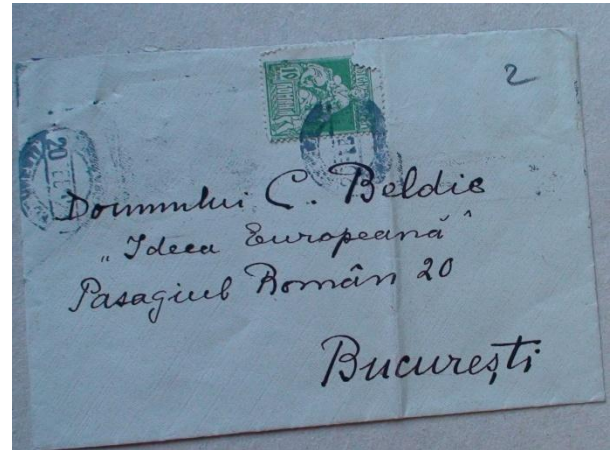 2
10
20
Domnului C. Beldie
"Ideea Europeană"
Pasagiul Român 20
București